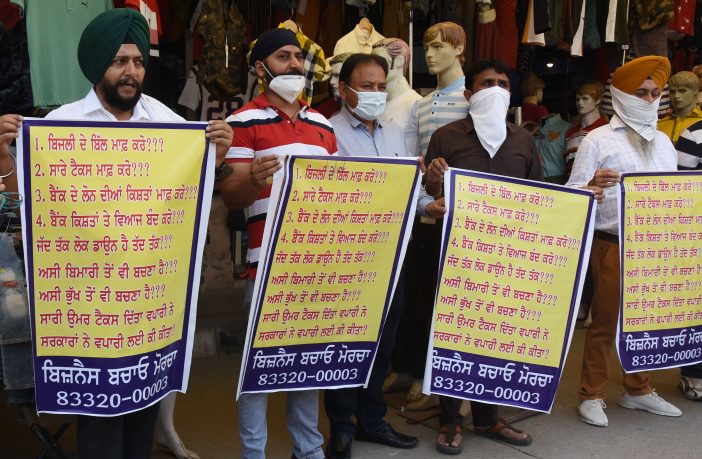 1. ਬਿਜਲੀ ਦੇ ਬਿੱਲ ਮਾਫ਼ ਕਰੋ???
2. ਸਾਰੇ ਟੈਕਸ ਮਾਫ਼ ਕਰੋ???
3. ਬੈਂਕ ਦੇ ਲੋਨ ਦੀਆਂ ਕਿਸ਼ਤਾਂ ਮਾਫ਼ ਕਰੋ???
4. ਬੈਂਕ ਕਿਸ਼ਤਾਂ ਤੇ ਵਿਆਜ ਬੰਦ ਕਰੋ???
ਜੱਦ ਤੱਕ ਲੋਕ ਡਾਊਨ ਹੈ ਤੱਦ ਤੱਕ???
ਅਸੀ ਬਿਮਾਰੀ ਤੋਂ ਵੀ ਬਚਣਾ ਹੈ???
ਅਸੀ ਭੁੱਖ ਤੋਂ ਵੀ ਬਚਣਾ ਹੈ???
ਸਾਰੀ ਉਮਰ ਟੈਕਸ ਦਿੱਤਾ ਵਪਾਰੀ ਨੇ
ਸਰਕਾਰਾਂ ਨੇ ਵਪਾਰੀ ਲਈ ਕੀ ਕੀਤਾ?
ਬਿਜ਼ਨੈਸ ਬਚਾਓ ਮੋਰਚਾ
83320-00003
1. ਬਿਜਲੀ ਦੇ ਬਿੱਲ ਮਾਫ਼ ਕਰੋ???
2. ਸਾਰੇ ਟੈਕਸ ਮਾਫ਼ ਕਰੋ???
3. ਬੈਂਕ ਦੇ ਲੋਨ ਦੀਆਂ ਕਿਸ਼ਤਾਂ ਮਾਫ਼ ਕਰੋ???
4. ਬੈਂਕ ਕਿਸ਼ਤਾਂ ਤੇ ਵਿਆਜ ਬੰਦ ਕਰੋ???
ਜੱਦ ਤੱਕ ਲੋਕ ਡਾਊਨ ਹੈ ਤੱਦ ਤੱਕ???
ਅਸੀ ਬਿਮਾਰੀ ਤੋਂ ਵੀ ਬਚਣਾ ਹੈ???
ਅਸੀ ਭੁੱਖ ਤੋਂ ਵੀ ਬਚਣਾ ਹੈ???
ਸਾਰੀ ਉਮਰ ਟੈਕਸ ਦਿੱਤਾ ਵਪਾਰੀ ਨੇ
ਸਰਕਾਰਾਂ ਨੇ ਵਪਾਰੀ ਲਈ ਕੀ ਕੀਤਾ?
ਬਿਜ਼ਨੈਸ ਬਚਾਓ ਮੋਰਚਾ
83320-00003
1. ਬਿਜਲੀ ਦੇ ਬਿੱਲ ਮਾਫ਼ ਕਰੋ???
2. ਸਾਰੇ ਟੈਕਸ ਮਾਫ਼ ਕਰੋ???
3. ਬੈਂਕ ਦੇ ਲੋਨ ਦੀਆਂ ਕਿਸ਼ਤਾਂ ਮਾਫ਼ ਕਰੋ???
4. ਬੈਂਕ ਕਿਸ਼ਤਾਂ ਤੇ ਵਿਆਜ ਬੰਦ ਕਰੋ???
ਜੱਦ ਤੱਕ ਲੋਕ ਡਾਊਨ ਹੈ ਤੱਦ ਤੱਕ???
ਅਸੀ ਬਿਮਾਰੀ ਤੋਂ ਵੀ ਬਚਣਾ ਹੈ???
ਅਸੀ ਭੁੱਖ ਤੋਂ ਵੀ ਬਚਣਾ ਹੈ???
ਸਾਰੀ ਉਮਰ ਟੈਕਸ ਦਿੱਤਾ ਵਪਾਰੀ ਨੇ
ਸਰਕਾਰਾਂ ਨੇ ਵਪਾਰੀ ਲਈ ਕੀ ਕੀਤਾ?
ਬਿਜ਼ਨੈਸ ਬਚਾਓ ਮੋਰਚਾ
83320-00003
1. ਬਿਜਲੀ ਦੇ ਬਿੱਲ ਮਾਫ਼
2. ਸਾਰੇ ਟੈਕਸ ਮਾਫ਼
3. ਬੈਂਕ ਦੇ ਲੋਨ ਦੀਆਂ
4. ਬੈਂਕ ਕਿਸ਼ਤਾਂ ਤੇ
ਜੱਦ ਤੱਕ ਲੋਕ ਡਾਊਨ
ਅਸੀ ਬਿਮਾਰੀ ਤੋਂ ਵੀ
ਅਸੀ ਭੁੱਖ ਤੋਂ ਵੀ
ਸਾਰੀ ਉਮਰ ਟੈਕਸ
ਸਰਕਾਰਾਂ ਨੇ ਵਪਾਰੀ
ਬਿਜ਼ਨੈਸ ਬਚਾਓ
83320-000